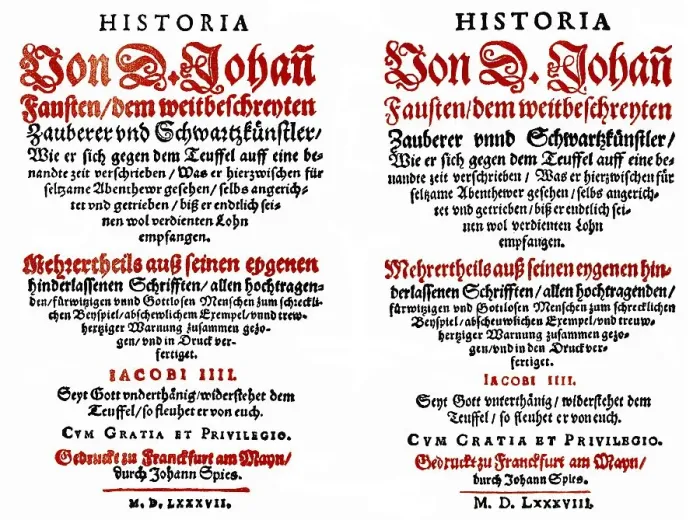 HISTORIA
Von D. Johañ
Fausten/dem weitbeschreyten
Zauberer vnd Schwartzkünstler/
Wie er sich gegen dem Teuffel auff eine be⸗
nandte zeit verschrieben / Was er hierzwischen für
seltzame Abenthewr gesehen / selbs angerich⸗
tet vnd getrieben / biß er endtlich sei⸗
nen wol verdienten Lohn
empfangen.
Mehrertheils auß seinen eygenen
hinderlassenen Schrifften / allen hochtragen⸗
den / fürwitzigen vnnd Gottlosen Menschen zum schreckli⸗
chen Beyspiel / abschewlichem Exempel / vnnd trew⸗
hertziger Warnung zusammen gezo⸗
gen / vnd in Druck ver⸗
fertiget.
IACOBI IIII.
Seyt Gott vnderthänig / widerstehet dem
Teuffel / so fleuhet er von euch.
CVM GRATIA ET PRIVILEGIO.
Gedruckt zu Franckfurt am Mayn /
durch Johann Spies.
M. D. LXXXVII.
HISTORIA
Von D. Johañ
Fausten/dem weitbeschreyten
Zauberer vnnd Schwartzkünstler/
Wie er sich gegen dem Teuffel auff eine be⸗
nandte zeit verschrieben / Was er hierzwischen für
seltzame Abenthewer gesehen / selbs angerich⸗
tet vnd getrieben / biß er endtlich sei⸗
nen wol verdienten Lohn
empfangen.
Mehrertheils auß seinen eygenen hin⸗
derlassenen Schrifften / allen hochtragenden /
fürwitzigen vnd Gottlosen Menschen zum schrecklichen
Beyspiel / abscheuwlichen Exempel / vnd treuw⸗
hertziger Warnung zusammen gezo⸗
gen / vnd in den Druck ver⸗
fertiget.
IACOBI IIII.
Seyt Gott vnterthänig / widerstehet dem
Teuffel / so fleuhet er von euch.
CVM GRATIA ET PRIVILEGIO.
Gedruckt zu Franckfurt am Mayn /
durch Johann Spies.
M. D. LXXXVIII.